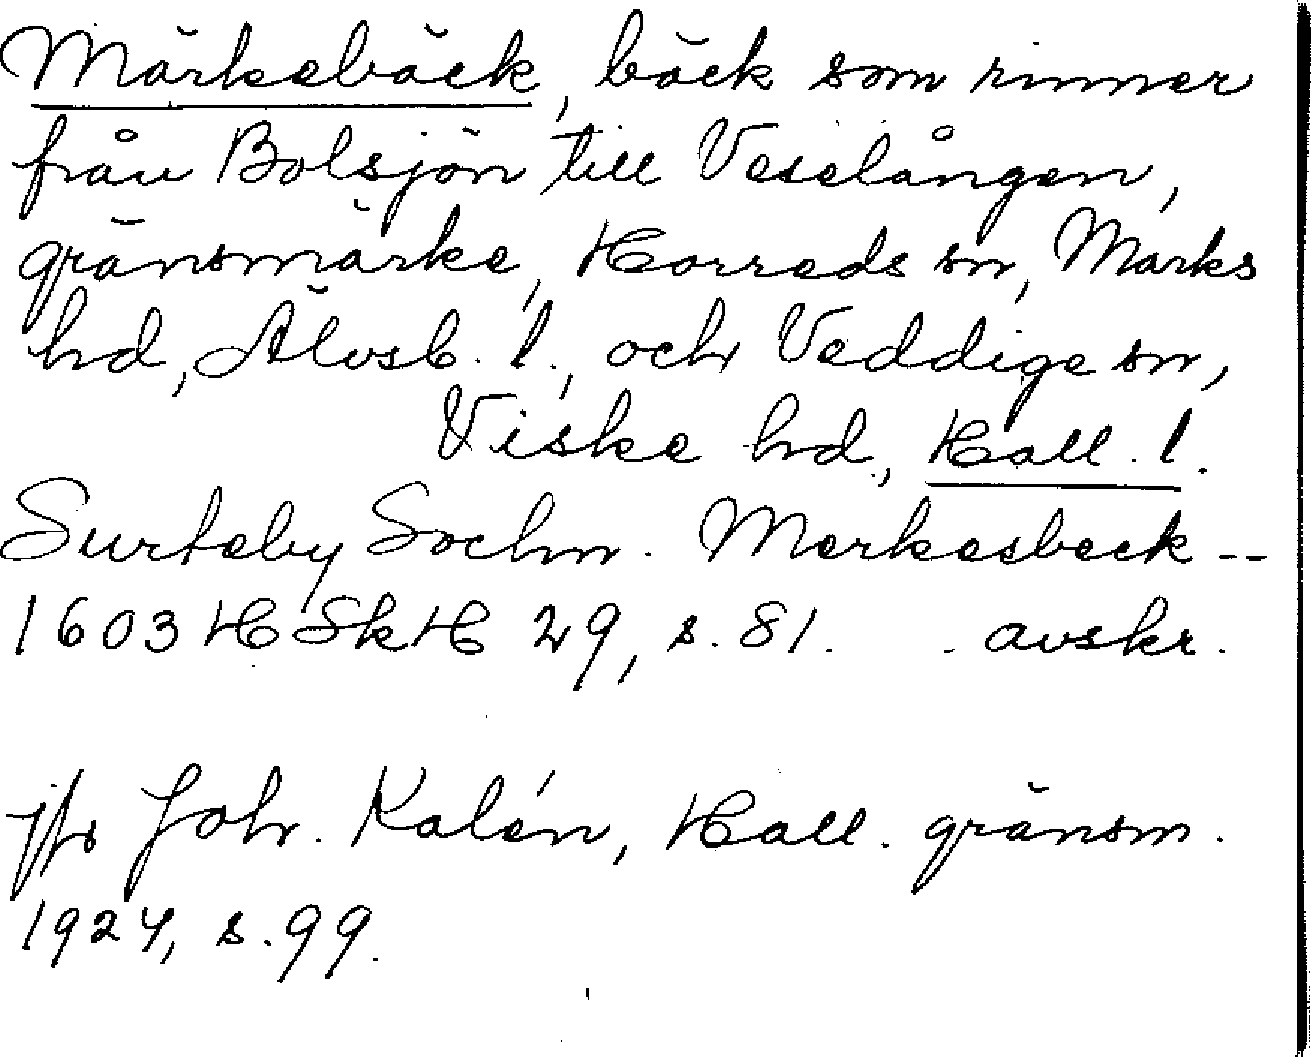 Märkebäck, bäck som rinner
från Bolsjön till Veselången,
gränsmärke, Horreds sn, Marks
hd, Älvsb. l., och Veddige sn,
Viske hd, Hall. l.
Surteby Sochn. Merkesbeck --
1603 HSkH 29, s. 81. avskr.
jfr Joh. Kalén, Hall. gränsm.
1924, s. 99.